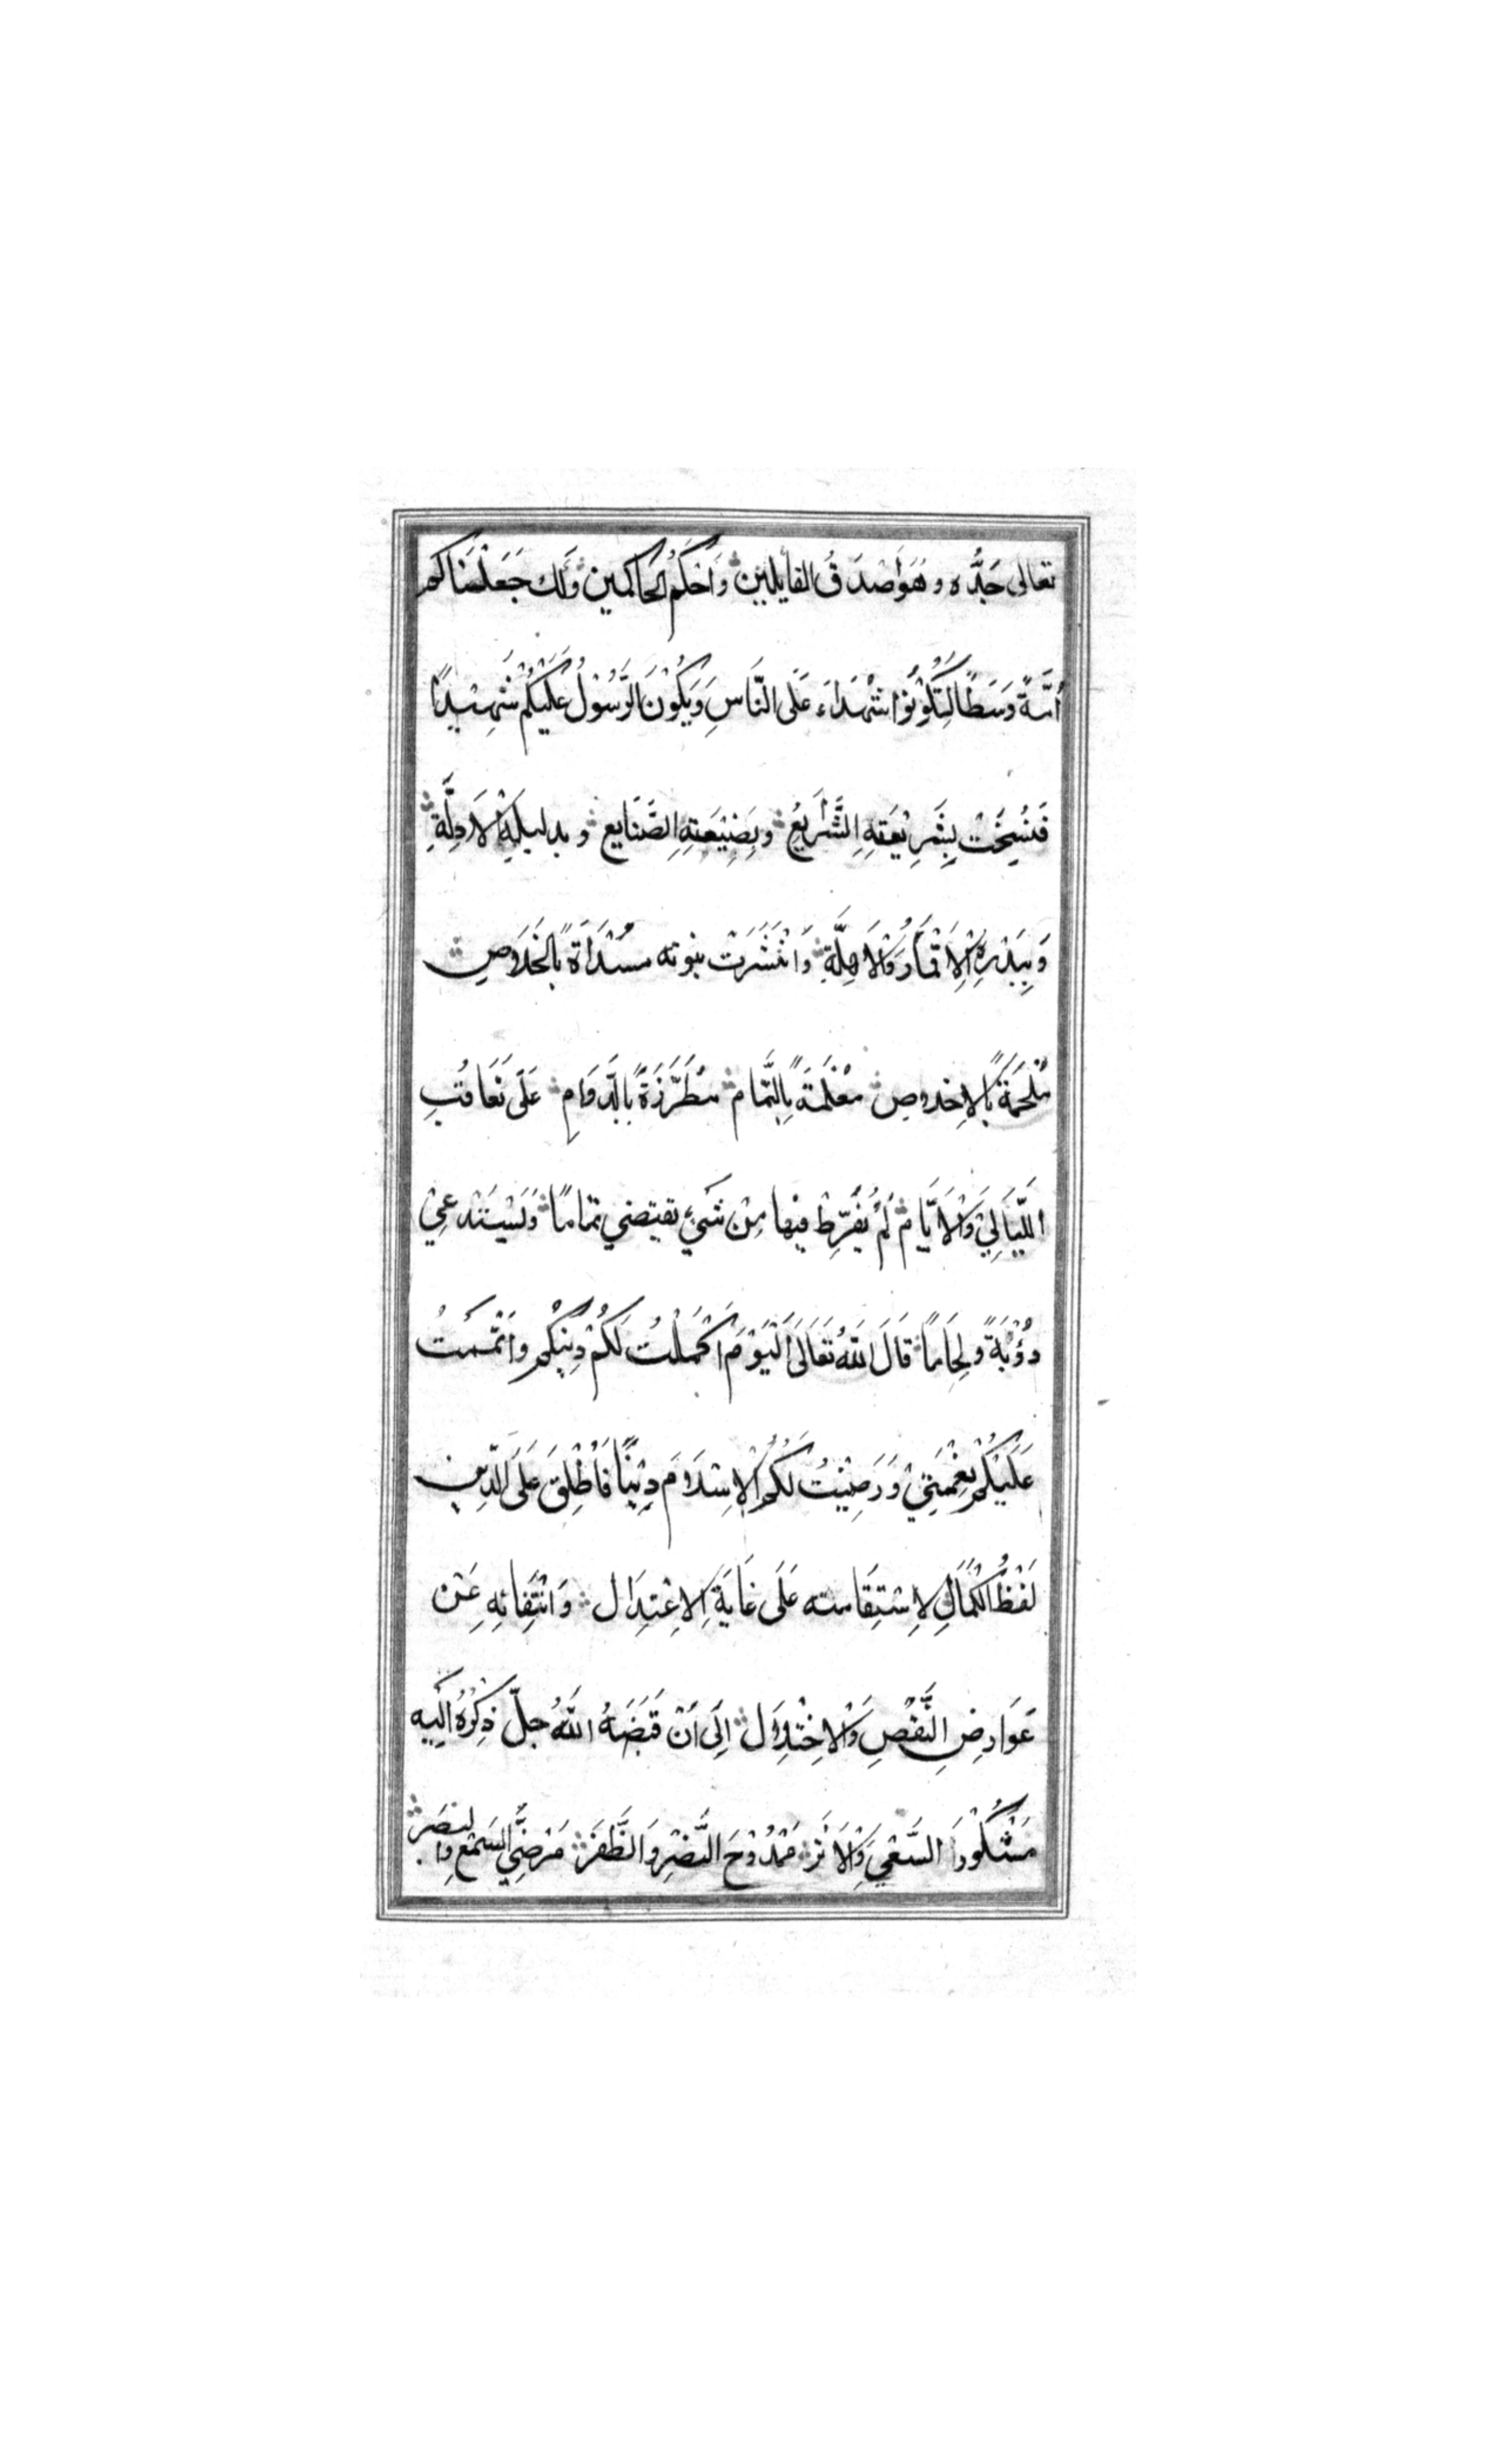 تعالى جَدُّه وهُوَ اَصْدَقُ القايلين وَاَحْكَمُ الحاكمين وَلك جَعَلْنَاكم
أمّةً وَسَطًا لِتَكُوْنُوا شُهَدَاءَ عَلَى النَّاسِ وَيَكُوْنَ الرَّسُوْلُ عَلَيْكُمْ شَهِيْدًا
فَنُسِخَتْ بِشَرِيْعَتِهِ الشَّرَايِعُ وبِصَنِيْعَتِهِ الصَّنَايع وبدليلهِ الْاَدِلَّةِ
وَبِبَدْرِهِ الْاَقْمَارُ وَالْاَهِلَّةِ وَانْتَشَرَتْ نبوته مسْدَاةً بالخَلَاصِ
مُلْحَمَةً بالاِخلاصِ مُعْلَمَةً بِالتَّمام مُطَرَّزَةً بالدَّوَامِ عَلَى تَعَاقُبِ
اللَّيَالِيْ وَالْاَيَّام لَمْ يُفَرِّطْ فيها مِنْ شَيْءٍ يقتضي تماما وَيَسْتَدْعِيْ
دؤْبَةً ولِحَامًا قَالَ اللهُ تَعَالَى اَلْيَوْمَ اَكْمَلْتُ لَكُمْ دِيْنَكُم واَتْمَمْتُ
عَلَيْكُمْ نِعْمَتِيْ وَرَضِيْتُ لَكُمُ الْاِسْلَامَ دِيْنًا فَاَطْلَقَ عَلَى الدِّين
لَفْظَ الْكَمَالِ لِاسْتِقَامته عَلَى غَايَةِ الاِعْتِدَال وَانْتِفَائِهِ عَنْ
عَوَارِضِ النَّقْصِ وَالْاِخْتِلَال اِلَى اَنْ قَبَضَهُ اللهُ جلّ ذِكْرُهُ اِلَيه
مَشْكُوْرَ السَّعْيِ وَالْاَثَر مَمْدُوْحَ النَّصْرِ وَالظَّفَر مَرْضِيَّ السَّمْعِ وَالبَصَر